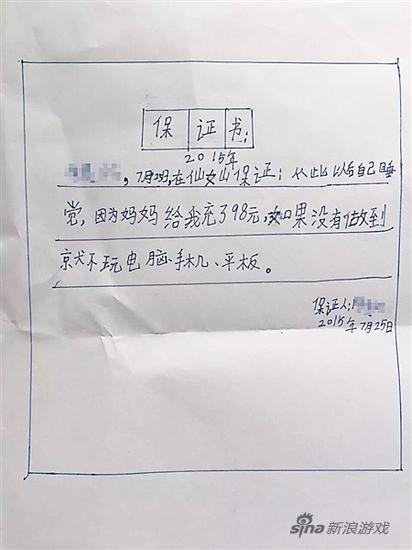 保证书：
2015年
，7月25日，在仙女山保证：从此以后自己睡
觉，因为妈妈给我充了98元，如果没有做到
就不玩电脑、手机、平板。
保证人：
2015年7月25日
sina新浪游戏